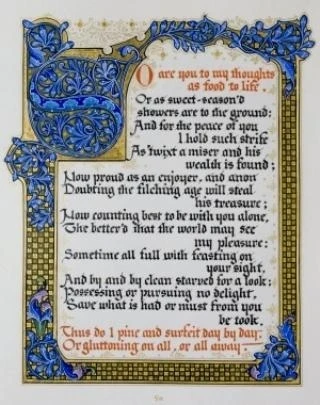 SO are you to my thoughts
as food to life,
Or as sweet-season'd
showers are to the ground:
And for the peace of you
I hold such strife
As 'twixt a miser and his
wealth is found;
Now proud as an enjoyer, and anon
Doubting the filching age will steal
his treasure;
Now counting best to be with you alone,
The better'd that the world may see
my pleasure:
Sometime all full with feasting on
your sight,
And by and by clean starved for a look;
Possessing or pursuing no delight,
Save what is had or must from you
be took.
Thus do I pine and surfeit day by day,
Or gluttoning on all, or all away.